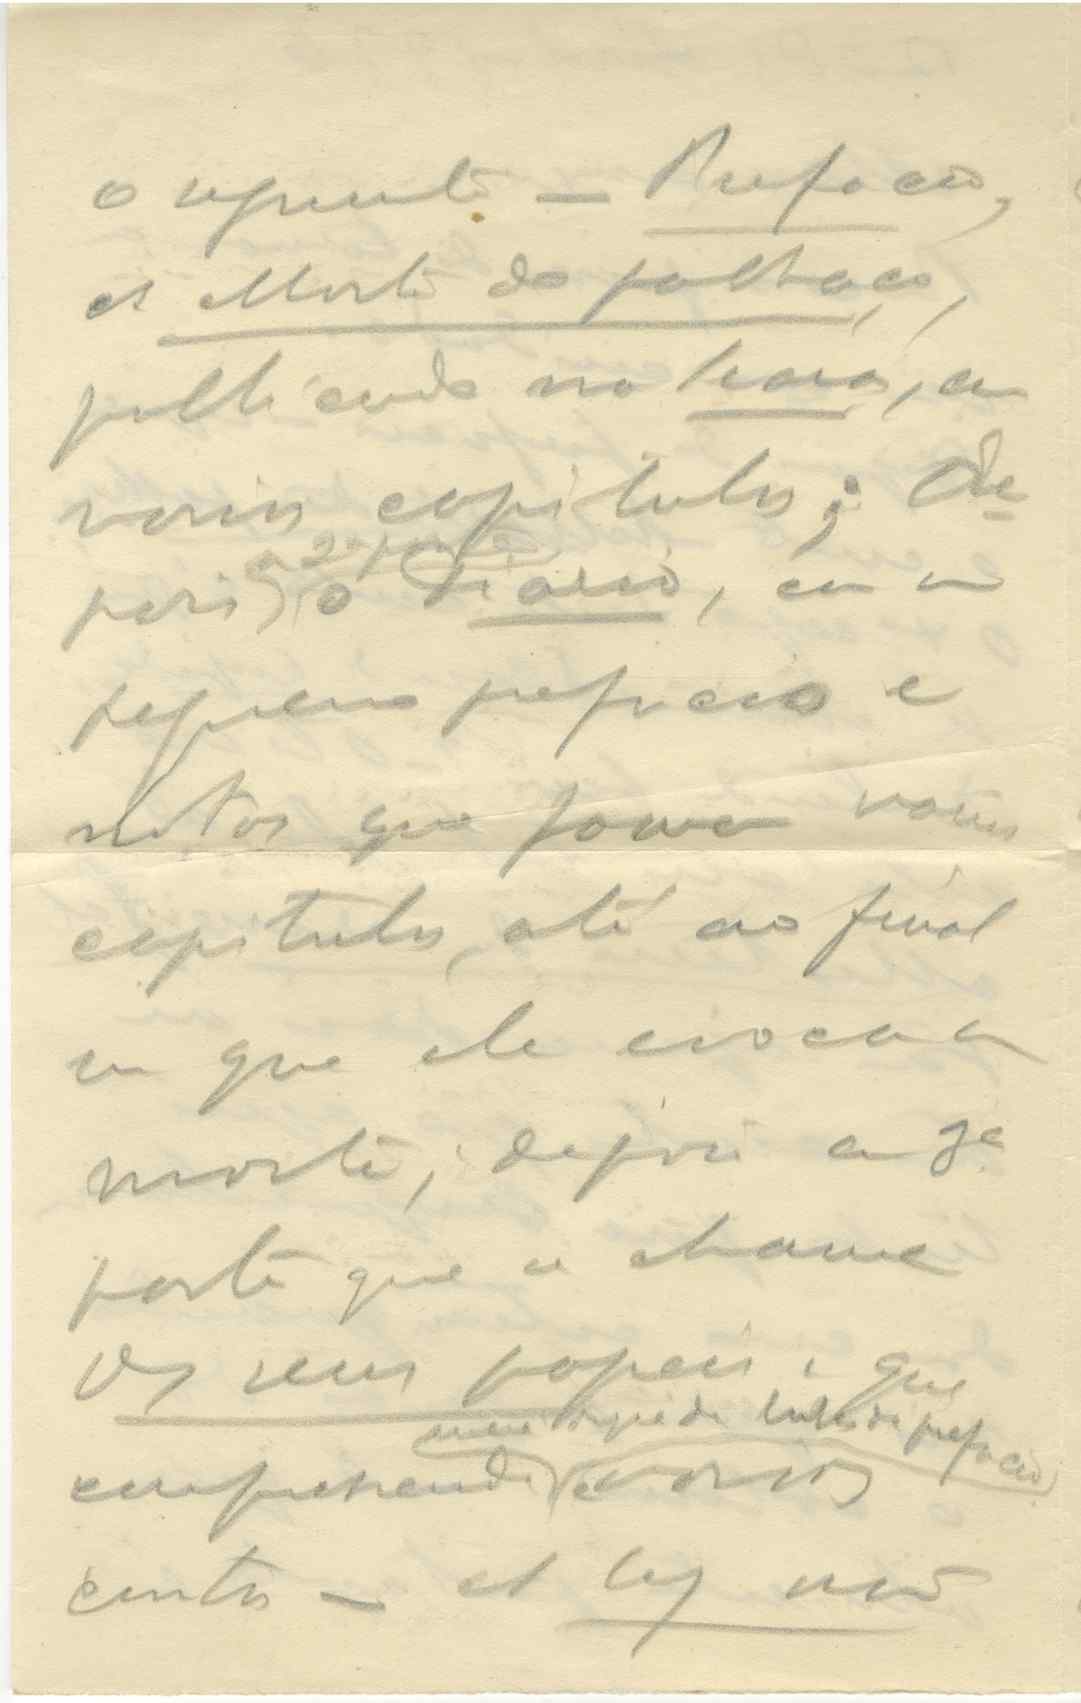 o seguinte — Prefacio,
A Morte do palhaço,
publicado no diario, em
varios capitulos; De-
a 2ª parte
pois, o Diario, com um
pequeno prefacio e
notas que formam varios
capitulos, até ao final
em que ele evoca a
morte; depois a 3ª
parte que se chama
Os seus papeis, que
uma especie de prefacio
comprehende varios
contos — A luz não